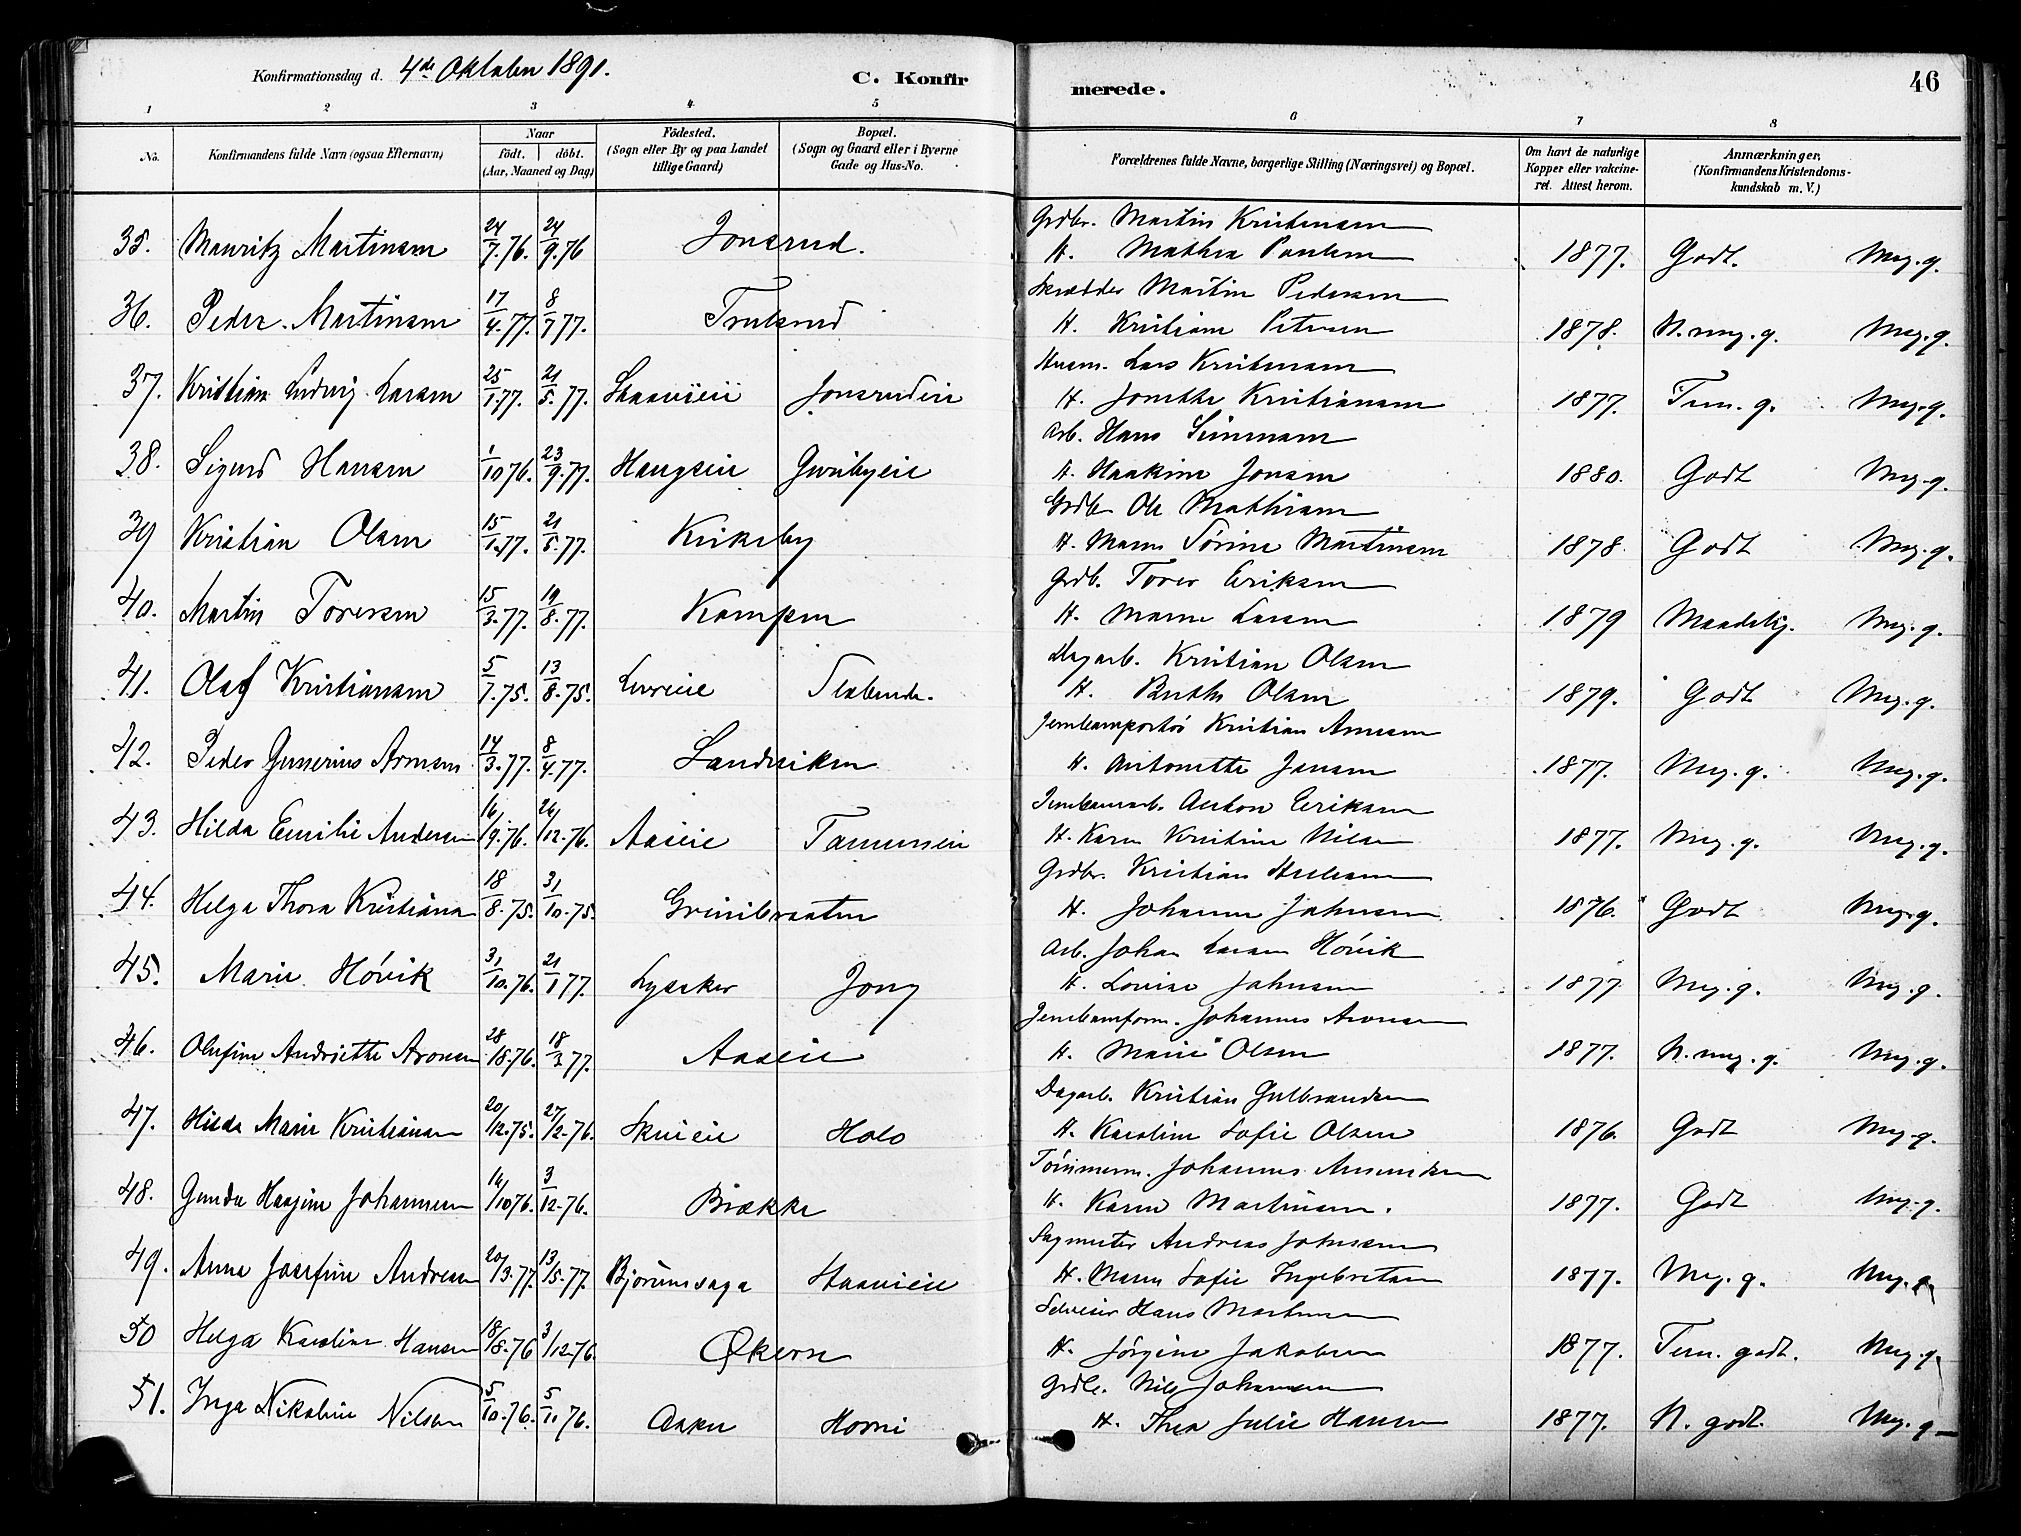 Konfirmationsdag d. 4de Oktober 1891.
C. Konfir
merede.
46
1 2 3 4 5 6 7 8
No.
Konfirmandens fulde Navn (ogsaa Efternavn)
Naar
födt. döbt.
(Aar, Maaned og Dag)
Födested.
(Sogn eller By og paa Landet
tillige Gaard)
Bopæl.
(Sogn og Gaard eller i Byerne
Gade og Hus-No.
Forældrenes fulde Navne, borgerlige Stilling (Næringsvei) og Bopæl.
Om havt de naturlige
Kopper eller vakcine-
ret. Attest herom.
Anmærkninger,
(Konfirmandens Kristendoms-
kundskab m. V.)
Grdbr. Martin Kristensen
35. Mauritz Martinsen 24/7.76. 24/9.76 Jonsrud. H. Mathea Paulsen 1877. Godt. Meg. g.
Skrædder Martin Pedersen
36. Peder Martinsen 17/4.77. 8/7 77. Trulsrud H. Kristiane Petersen 1878. N. meg. g. Meg. g.
Husm. Lars Kristensen
37. Kristian Ludvig Larsen 25/1.77. 21/5.77. Jonsrudeie H. Jonette Kristiansen 1877. Tem. g. Meg. g.
Arb. Hans Simensen
38. Sigurd Hansen 1/10 76. 23/9.77. Haugseie Guribyeie H. Haakine Jonsen 1880. Godt Meg. g.
Grdbr Ole Mathisen
39 Kristian Olsen 15/1.77. 21/5.77. Kirkeby H. Maren Sörine Martinsen 1878 Godt Meg. g.
Grdb. Tover Eriksen
40. Martin Toversen 15/3.77. 19/8.77. Kampen H. Maren Larsen 1879 Maadelig. Meg. g.
Dagarb. Kristian Olsen
41. Olaf Kristiansen 5/7.75. 13/8.75. H. Olsen 1879. Godt Meg. g.
Kristian Arnesen
42. Peder Gunerius Arnesen 14/3.77. 8/4.77. Sandviken H. Antonette Jensen 1877. Meg. g. Meg. g.
Jernbanearb. Anton Eriksen
43. Hilda Emilie Andersen 16/9.76. 26/12.76. Aaseie Tanumseie H. Karen Kristine Nilsen 1877. Meg. g. Meg. g.
Grdbr. Kristian
44. Helga Thora Kristiansen 18/8.75. 31/10.75. Grinibraaten H. Johanne Johnsen 1876. Godt Meg. g.
Arb. Johan Larsen Hövik
45. Marie Hövik 31/10.76. 21/1 77. Lysaker Jong H. Lovise Johnsen 1877 Meg. g. Meg. g.
Jernbaneform. Johannes Aronsen
46. Olufine Andriette Aronsen 28/ 76. 18/ 77. Aaseie H. Marie Olsen 1877. N. meg. g. Meg. g.
Dagarb. Kristian Gulbrandsen
47. Hilda Marie Kristiansen 20/12.75. 27/2.76. Skuieie Holo H. Karoline Sofie Olsen 1876. Godt Meg. g.
Tömmerm. Johannes Amundsen
48. Gunda Hagine Johannesen 16/10 76. 3/12.76. Brække H. Karen Martinsen. 1877. Godt Meg. g.
Sagmester Andreas Johnsen
49. Anna Josefine Andresen 20/3.77. 13/5.77. Björumsaga Staavieie H. Maren Sofie Ingebretsen 1877. Meg. g. Meg. g.
Selveier Hans Martinsen
50 Helga Karoline Hansen 18/8.76 3/12.76. Økern H. Jörgine Jakobsen 1877. Tem. godt. Meg. g.
Grdbr. Nils Johansen
51. Inga Nikoline Nilsen 5/10.76. 5/11 76. Asker Horni H. Thea Julie Hansen 1877. N. godt. Meg. g.